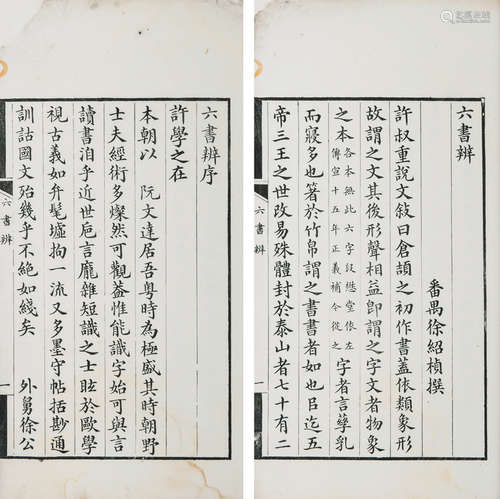 六書辨
番禺徐紹楨撰
許叔重說文敘曰倉頡之初作書蓋依類象形
故謂之文其後形聲相益卽謂之字文者物象
之本各本無此六字段懋堂依左傳宣十五年正義補今從之字者言孳乳
而寖多也箸於竹帛謂之書書者如也㠯迄五
帝三王之世改易殊體封於泰山者七十有二
六書辨
一
六書辨序
許學之在
本朝以 阮文達居吾粵時為極盛其時朝野
士夫經術多燦然可觀蓋惟能識字始可與言
讀書洎乎近世巵言龐雜短識之士眩於歐學
視古義如弁髦墟拘一流又多墨守帖括尠通
訓詁國文殆幾乎不絕如綫矣 外舅徐公
六書辨
一